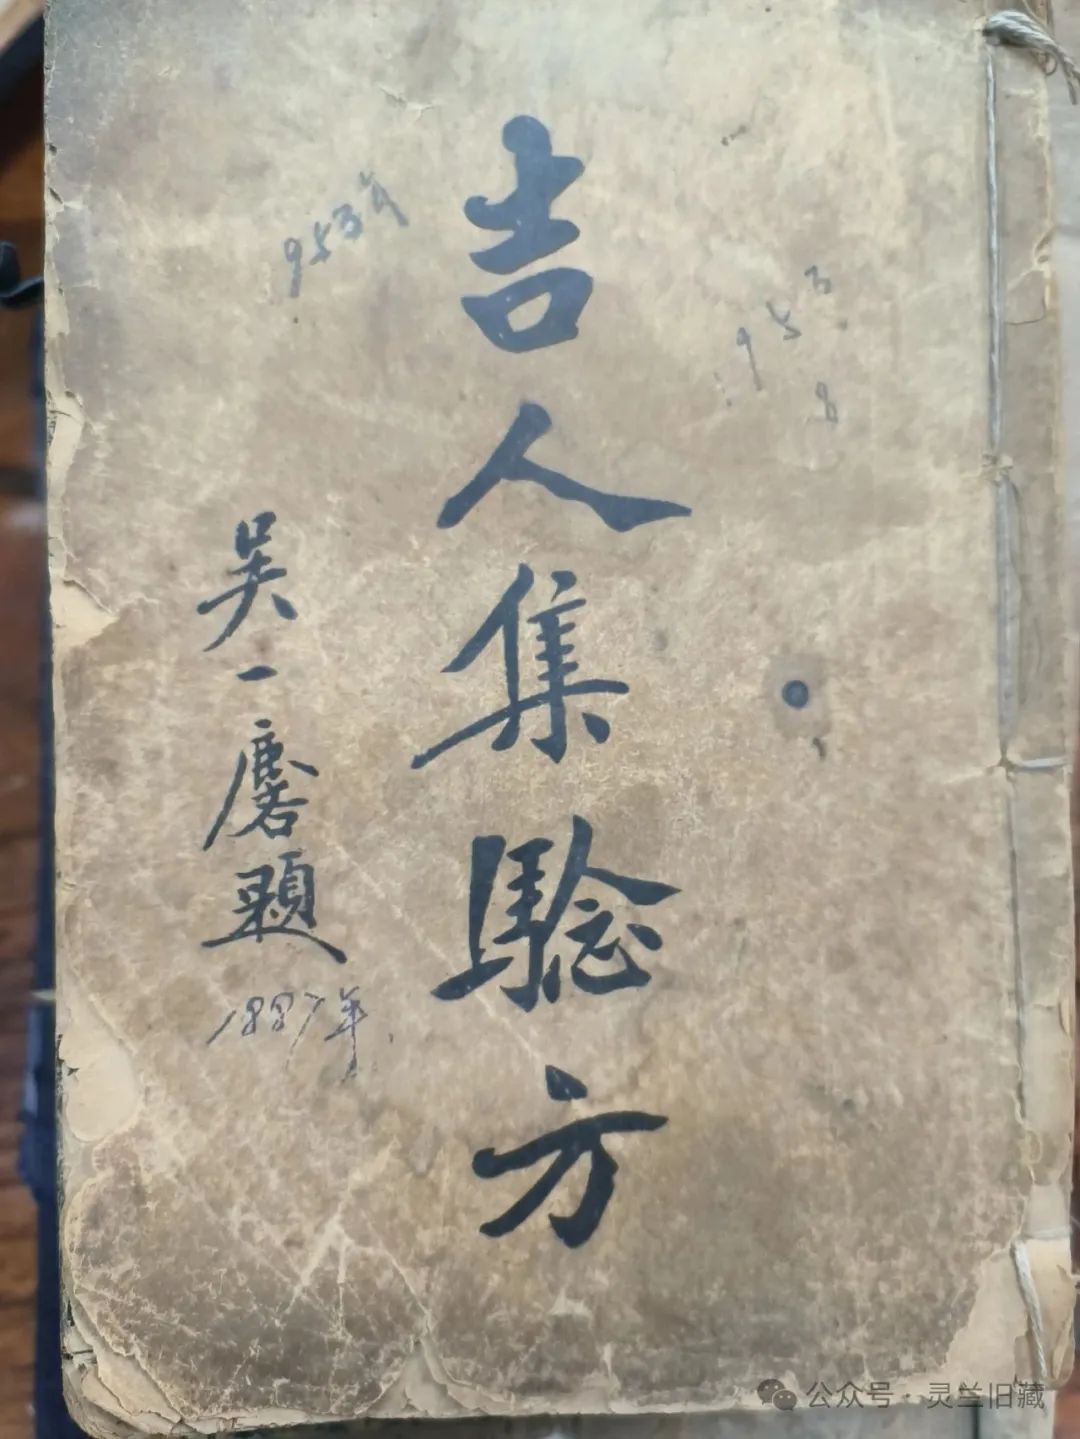 吉人集驗方
吳一麐題
1887年
953年
1953
8
公众号 · 灵兰旧藏